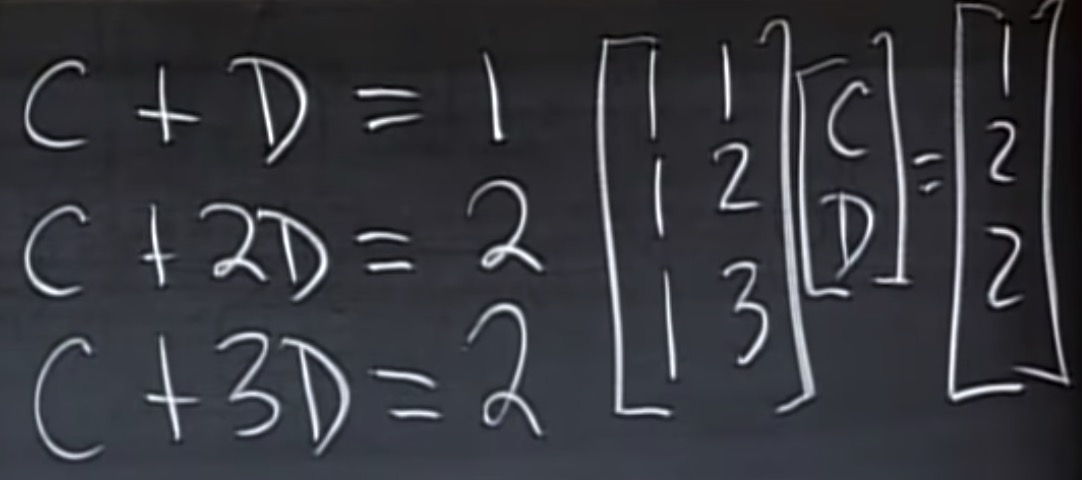 C + D = 1
C + 2D = 2
C + 3D = 2
[1 1
1 2
1 3] [C
D] = [1
2
2]